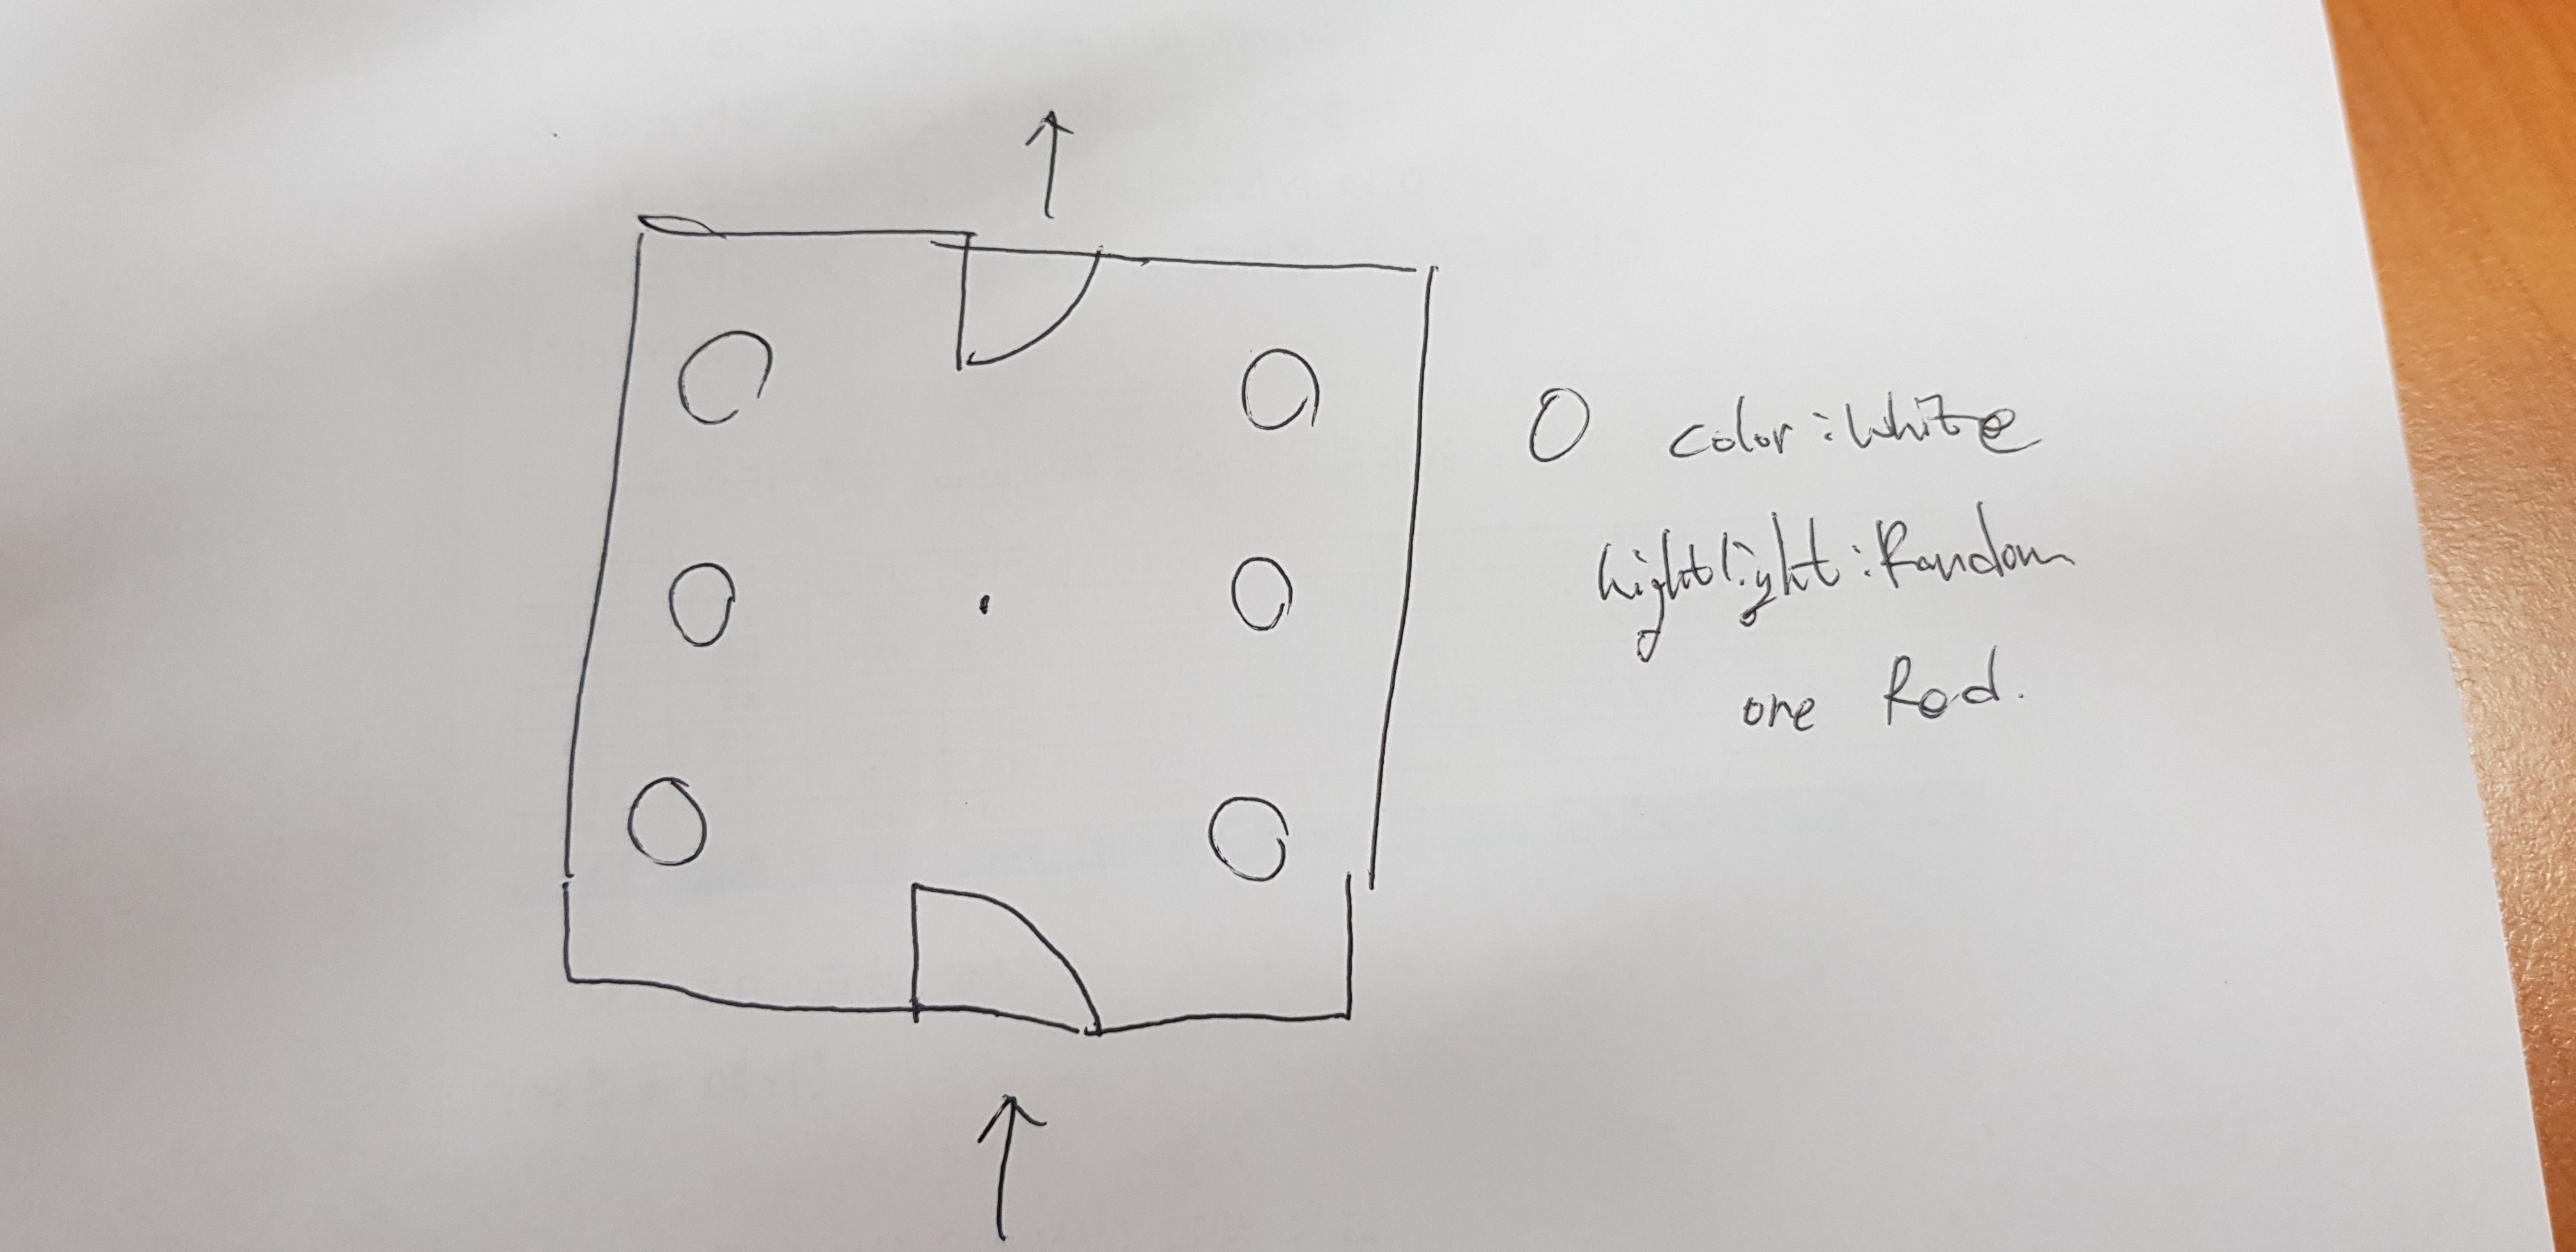 color : white
hightlight : Random
one Rod.